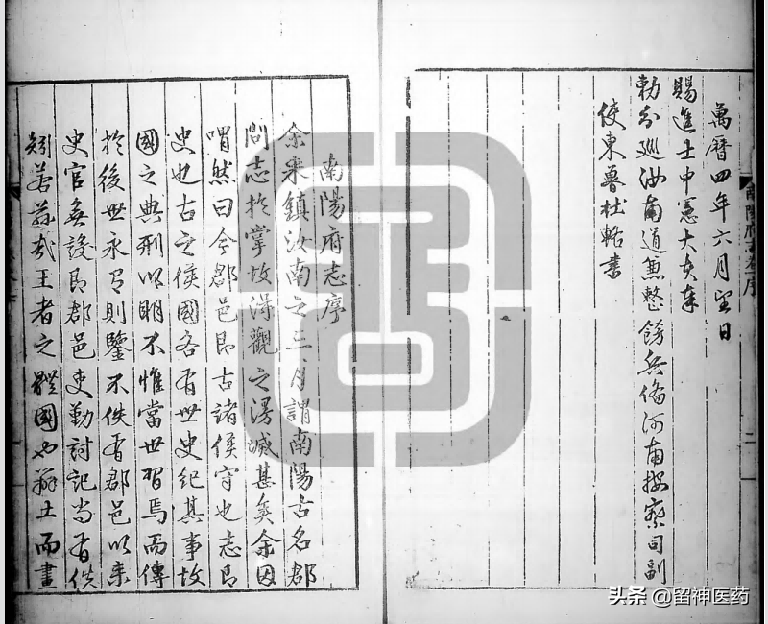 萬曆四年六月望日
賜進士中憲大夫奉
勑分巡汝南道兼整飭兵備河南按察司副
使東魯杜輅書
南陽府志序
余来鎮汝南之三月謂南陽古名郡
問志於掌故淂觀之漫滅甚矣余因
喟然曰今郡邑即古諸侯守也志即
史也古之侯國各有世史紀其事故
國之典刑以明不惟當世習焉而傳
於後世永有則鑒不佚者郡邑以来
史官無設即郡邑吏勤討記尚有佚
若茲哉王者之體國也辨土而書
二
头条 @留神医药